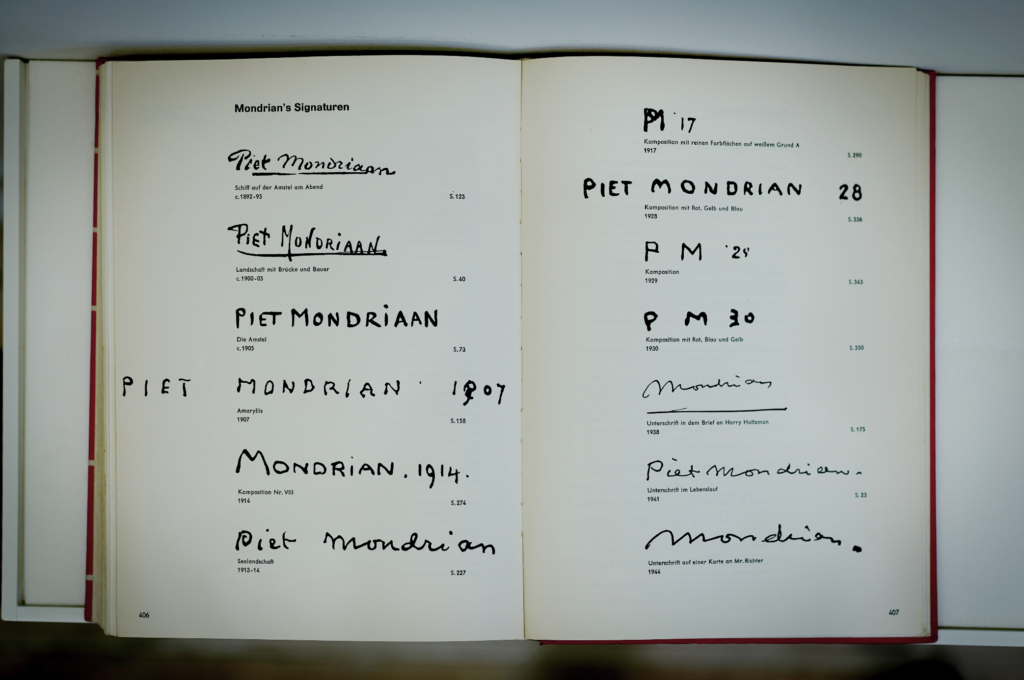 Mondrian's Signaturen
Piet Mondriaan
Schiff auf der Amstel am Abend
c.1892-95 S.123
Piet Mondriaan
Landschaft mit Brücke und Bauer
c.1900-05 S.40
PIET MONDRIAAN
Die Amstel
c.1905 S.73
PIET MONDRIAN 1907
Amaryllis
1907 S.158
MONDRIAN. 1914.
Komposition Nr. VIII
1914 S.274
Piet Mondrian
Seelandschaft
1913-14 S.227
406
PM '17
Komposition mit reinen Farbflächen auf weißem Grund A
1917 S.290
PIET MONDRIAN 28
Komposition mit Rot, Gelb und Blau
1928 S.336
P M '29
Komposition
1929 S.343
P M 30
Komposition mit Rot, Blau und Gelb
1930 S.350
Mondrian
Unterschrift in dem Brief an Harry Holtzman
1938 S.175
Piet Mondrian.
Unterschrift im Lebenslauf
1941 S.23
Mondrian.
Unterschrift auf einer Karte an Mr. Richter
1944
407